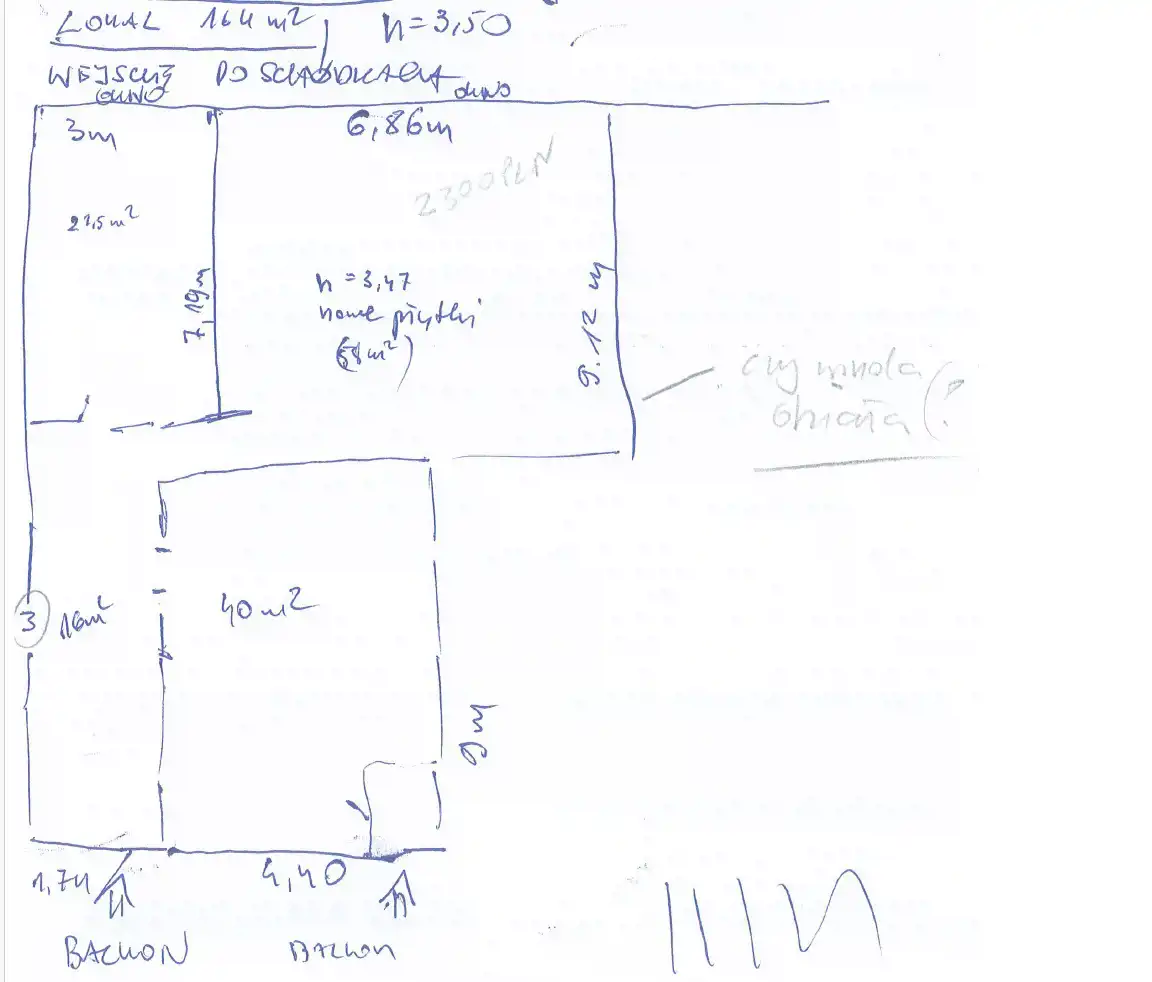 LOKAL 164 m² h=3,50
WEJSCIE PO SCHODKACH
OKNO
OKNO
3m
6,86m
2300 PLN
21,5 m²
7,19m
h=3,47
nowe płytki
(58m²)
9.12 m
czy można
(?
3
16m²
40 m²
9 m
1,74
4,40
BALKON
BALKON